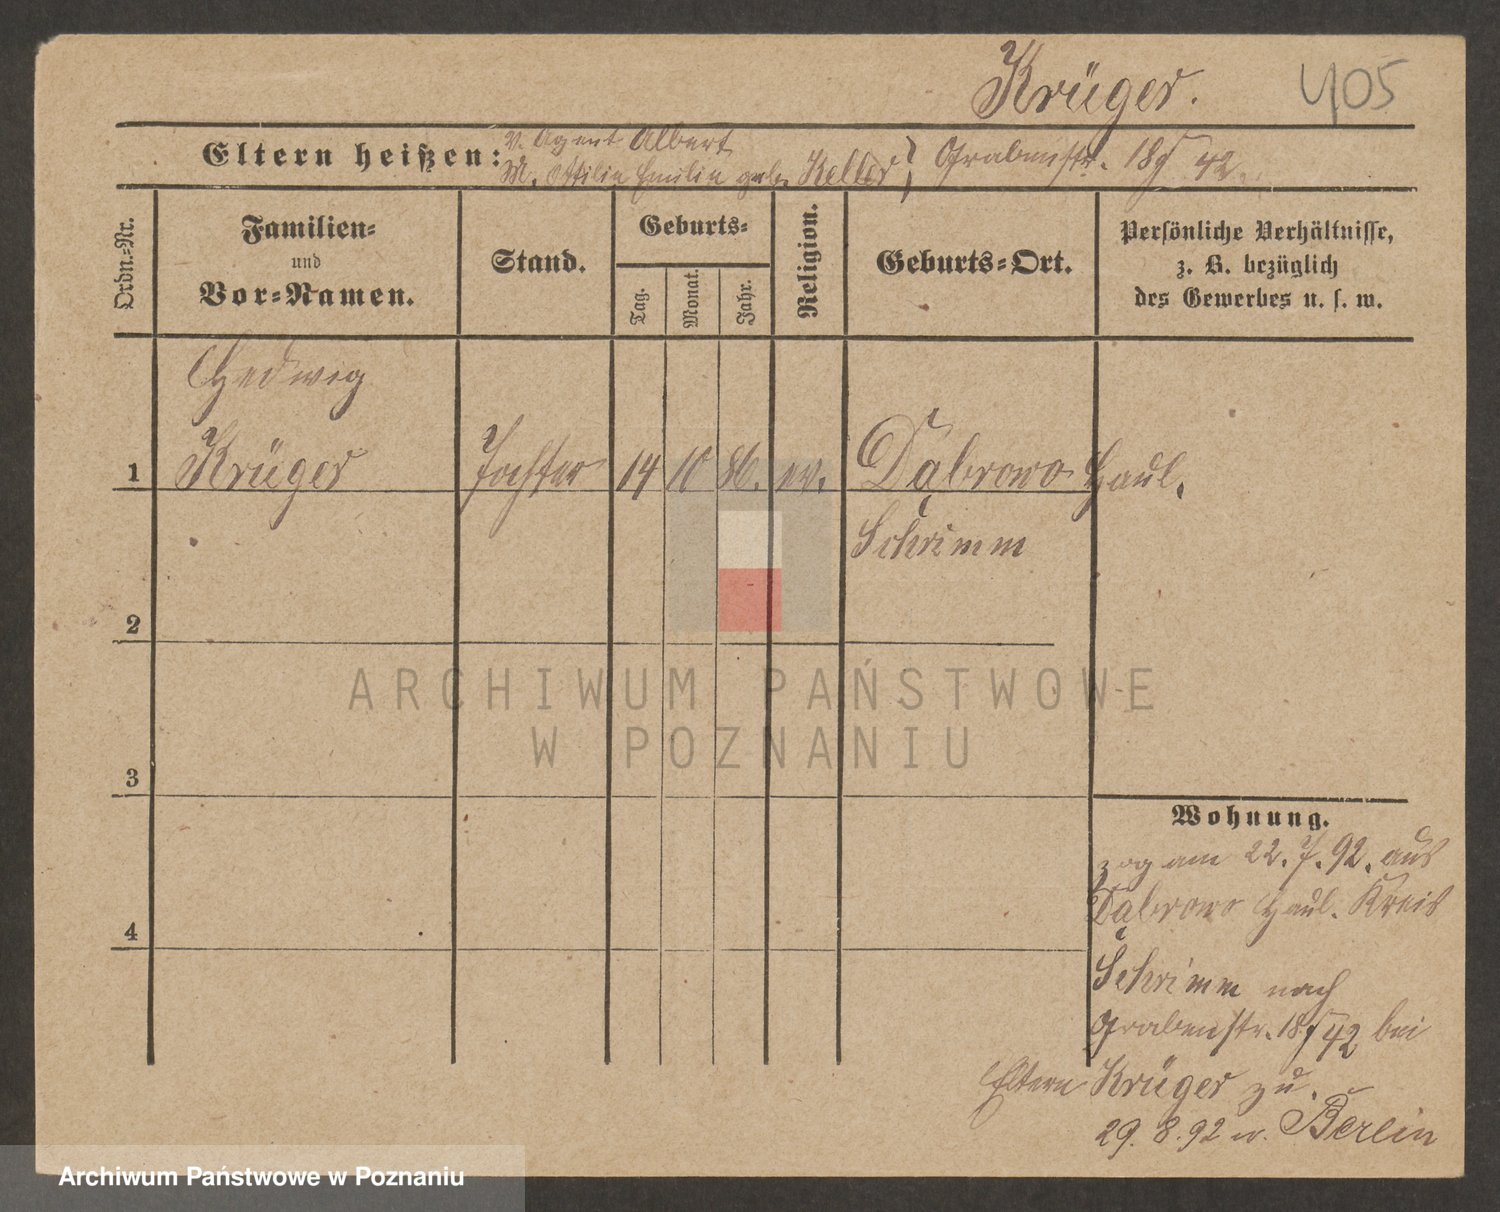 Krüger. 405
Eltern heißen: V. Agent Albert
M. Ottilie Emilie geb. Keller } Grabenstr. 18/42.
Ordn.-Nr.
Familien-
und
Vor-Namen.
Stand.
Geburts-
Tag.
Monat.
Jahr.
Religion.
Geburts-Ort.
Persönliche Verhältnisse,
z. B. bezüglich
des Gewerbes u. s. w.
Hedwig
1 Krüger Tochter 14 10 86. ev. Dąbrowo Haul.
Schrimm
2
3
4
Wohnung.
zog am 22. 7. 92. aus
Dąbrowo Haul. Kreis
Schrimm nach
Grabenstr. 18/42 bei
Eltern Krüger zu.
29. 8. 92 n. Berlin
ARCHIWUM PAŃSTWOWE
W POZNANIU
Archiwum Państwowe w Poznaniu